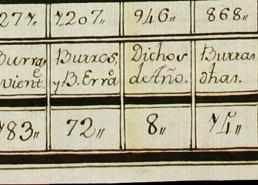 27?,, 7207,, 946,, 868,,
Burras e vient. Burros, y B. Errã Dichos de Año. Burras dhas.
783,, 72,, 8,, 74,,